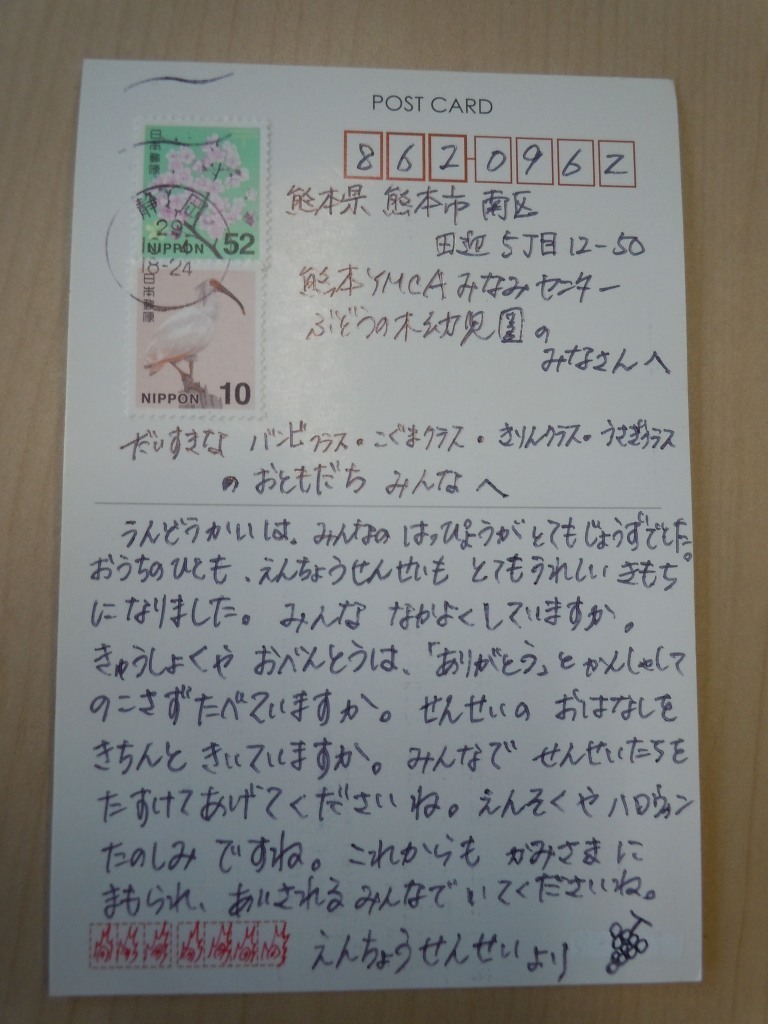 POST CARD
862-0962
日本郵便
NIPPON 52
静岡
29
18-24
日本郵便
NIPPON 10
熊本県 熊本市 南区
田迎 5丁目12-50
熊本YMCA みなみセンター
ぶどうの木幼児園の
みなさんへ
だいすきな バンビクラス・こぐまクラス・きりんクラス・うさぎクラス
の おともだち みんなへ
うんどうかいは、みんなの はっぴょうが とても じょうずでした。
おうちのひとも、えんちょうせんせいも とてもうれしい きもち
になりました。 みんな なかよくしていますか。
きゅうしょくや おべんとうは、「ありがとう」と かんしゃして
のこさず たべていますか。 せんせいの おはなしを
きちんと きいていますか。 みんなで せんせいたちを
たすけてあげてくださいね。 えんそくや ハロウィン
たのしみ ですね。 これからも かみさまに
まもられ、あいされる みんなで いてくださいね。
えんちょうせんせい より